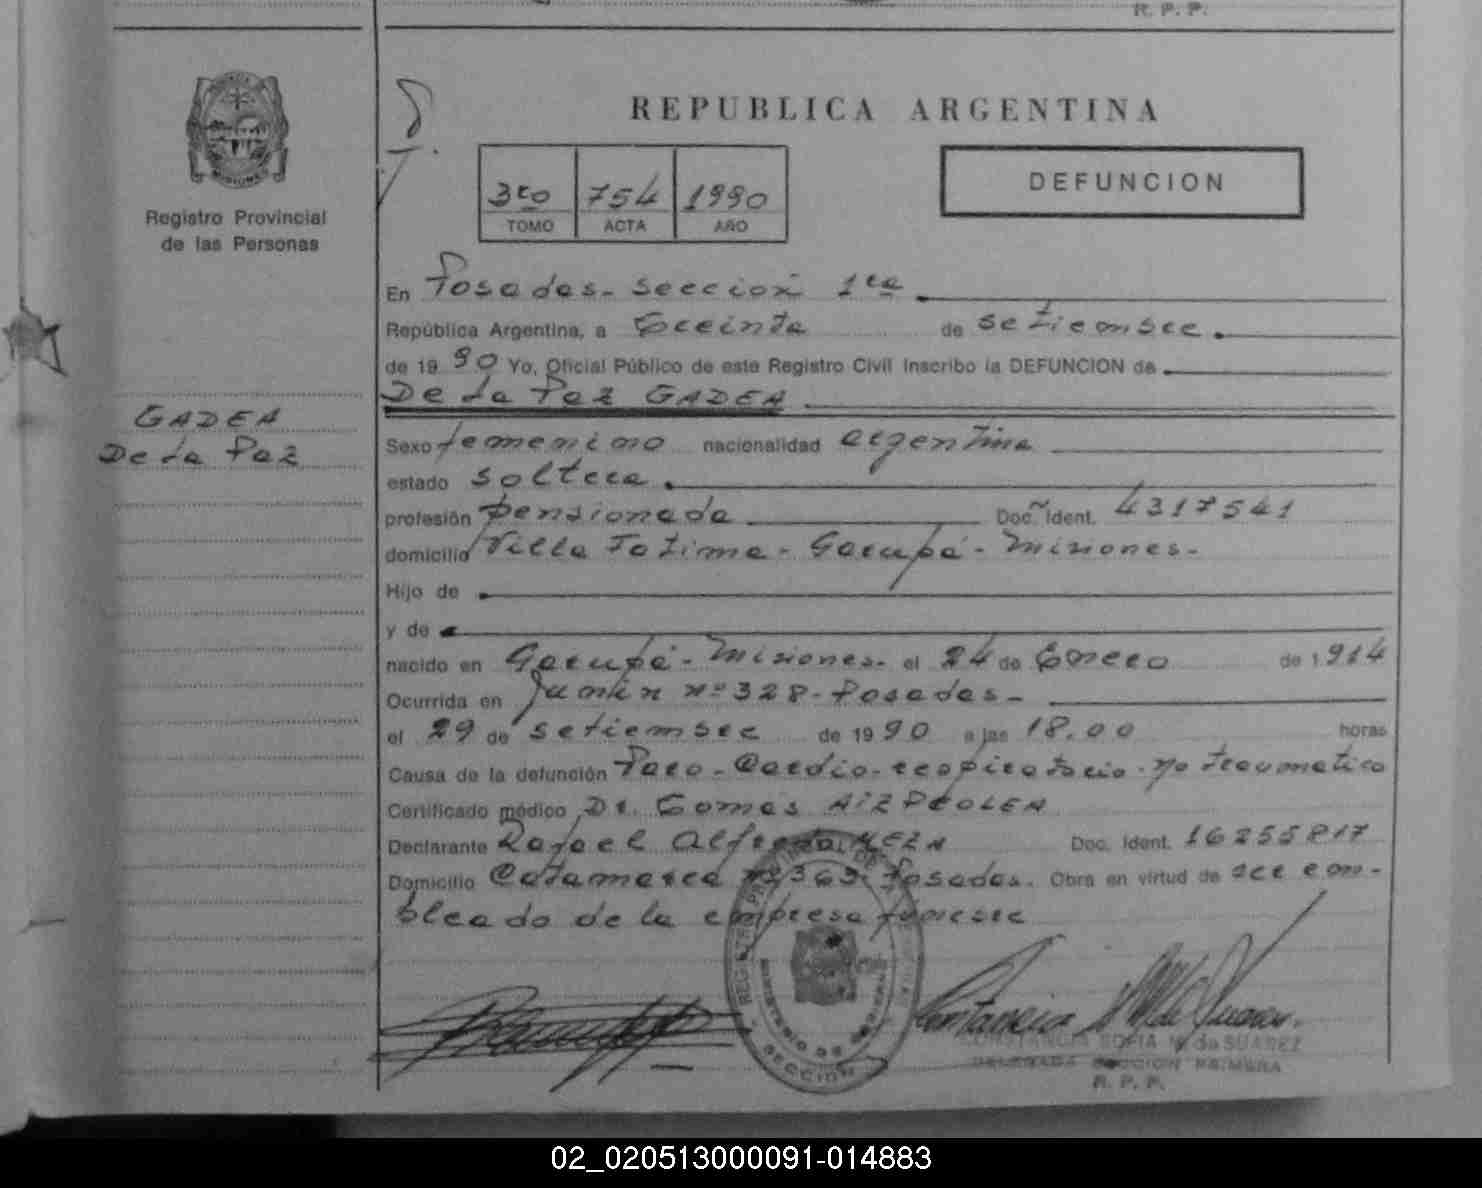 R. P. P.
Registro Provincial
de las Personas
REPUBLICA ARGENTINA
DEFUNCION
3ro 754 1990
TOMO ACTA AÑO
En Posadas- Sección 1ra
República Argentina, a treinta de setiembre
de 1990 Yo, Oficial Público de este Registro Civil Inscribo la DEFUNCION de
De la Paz GADEA
GADEA
De la Paz
Sexo femenino nacionalidad argentina
estado soltera.
profesión pensionada Doc. Ident. 4317541
domicilio Villa Fatima- Garupá- Misiones-
Hijo de
y de
nacido en Garupá- Misiones- el 24 de Enero de 1914
Ocurrida en Junín nº 328- Posadas-
el 29 de setiembre de 1990 a las 18.00 horas
Causa de la defunción Paro- Cardio-respiratorio- no traumatico
Certificado médico Dr. Gomes
Declarante Rafael Alfredo MEZA Doc. Ident. 16255817
Domicilio Catamarca nº 363- Posadas. Obra en virtud de ser em-
pleado de la empresa funebre
REGISTRO PROVINCIAL DE
MINISTERIO DE
SECCION
CONSTANCIA SOFIA M. de SUAREZ
DELEGADA SECCION PRIMERA
R. P. P.
02_020513000091-014883